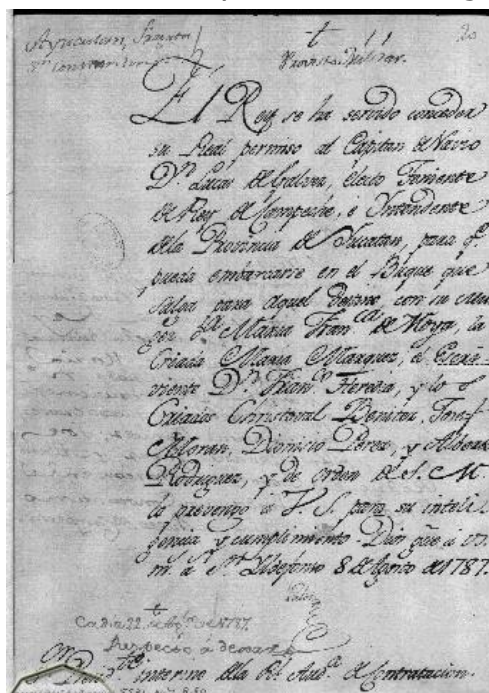 Ayucutan, Fragata
20
El Rey se ha servido conceder
su Real permiso al Capitan de Navio
Dn. Lucas de Galvez, electo Teniente
de Rey de Campeche, é Yntendente
dela Provincia de Yucatan, para qe.
pueda embarcarse en el Buque que
salga para aquel destino con su mu
ger Da. Maria Franca. de Moya, la
Criada Maria Marquez, el Escri-
viente Dn. Franco. Herera, y los
Criados Christoval Benitez, Josef
Moran, Dionicio Perez, y
Rodriguez, y de orden de S. M.
lo prevengo á V S. para su inteli
gencia y cumplimiento. Dios gûe á V.S.
m. a. Sn. Yldefonso 8 de Agosto de 1787.
Cadiz 22. de Agto. de 1787.
interino dela Rl. Auda. de Contratacion.